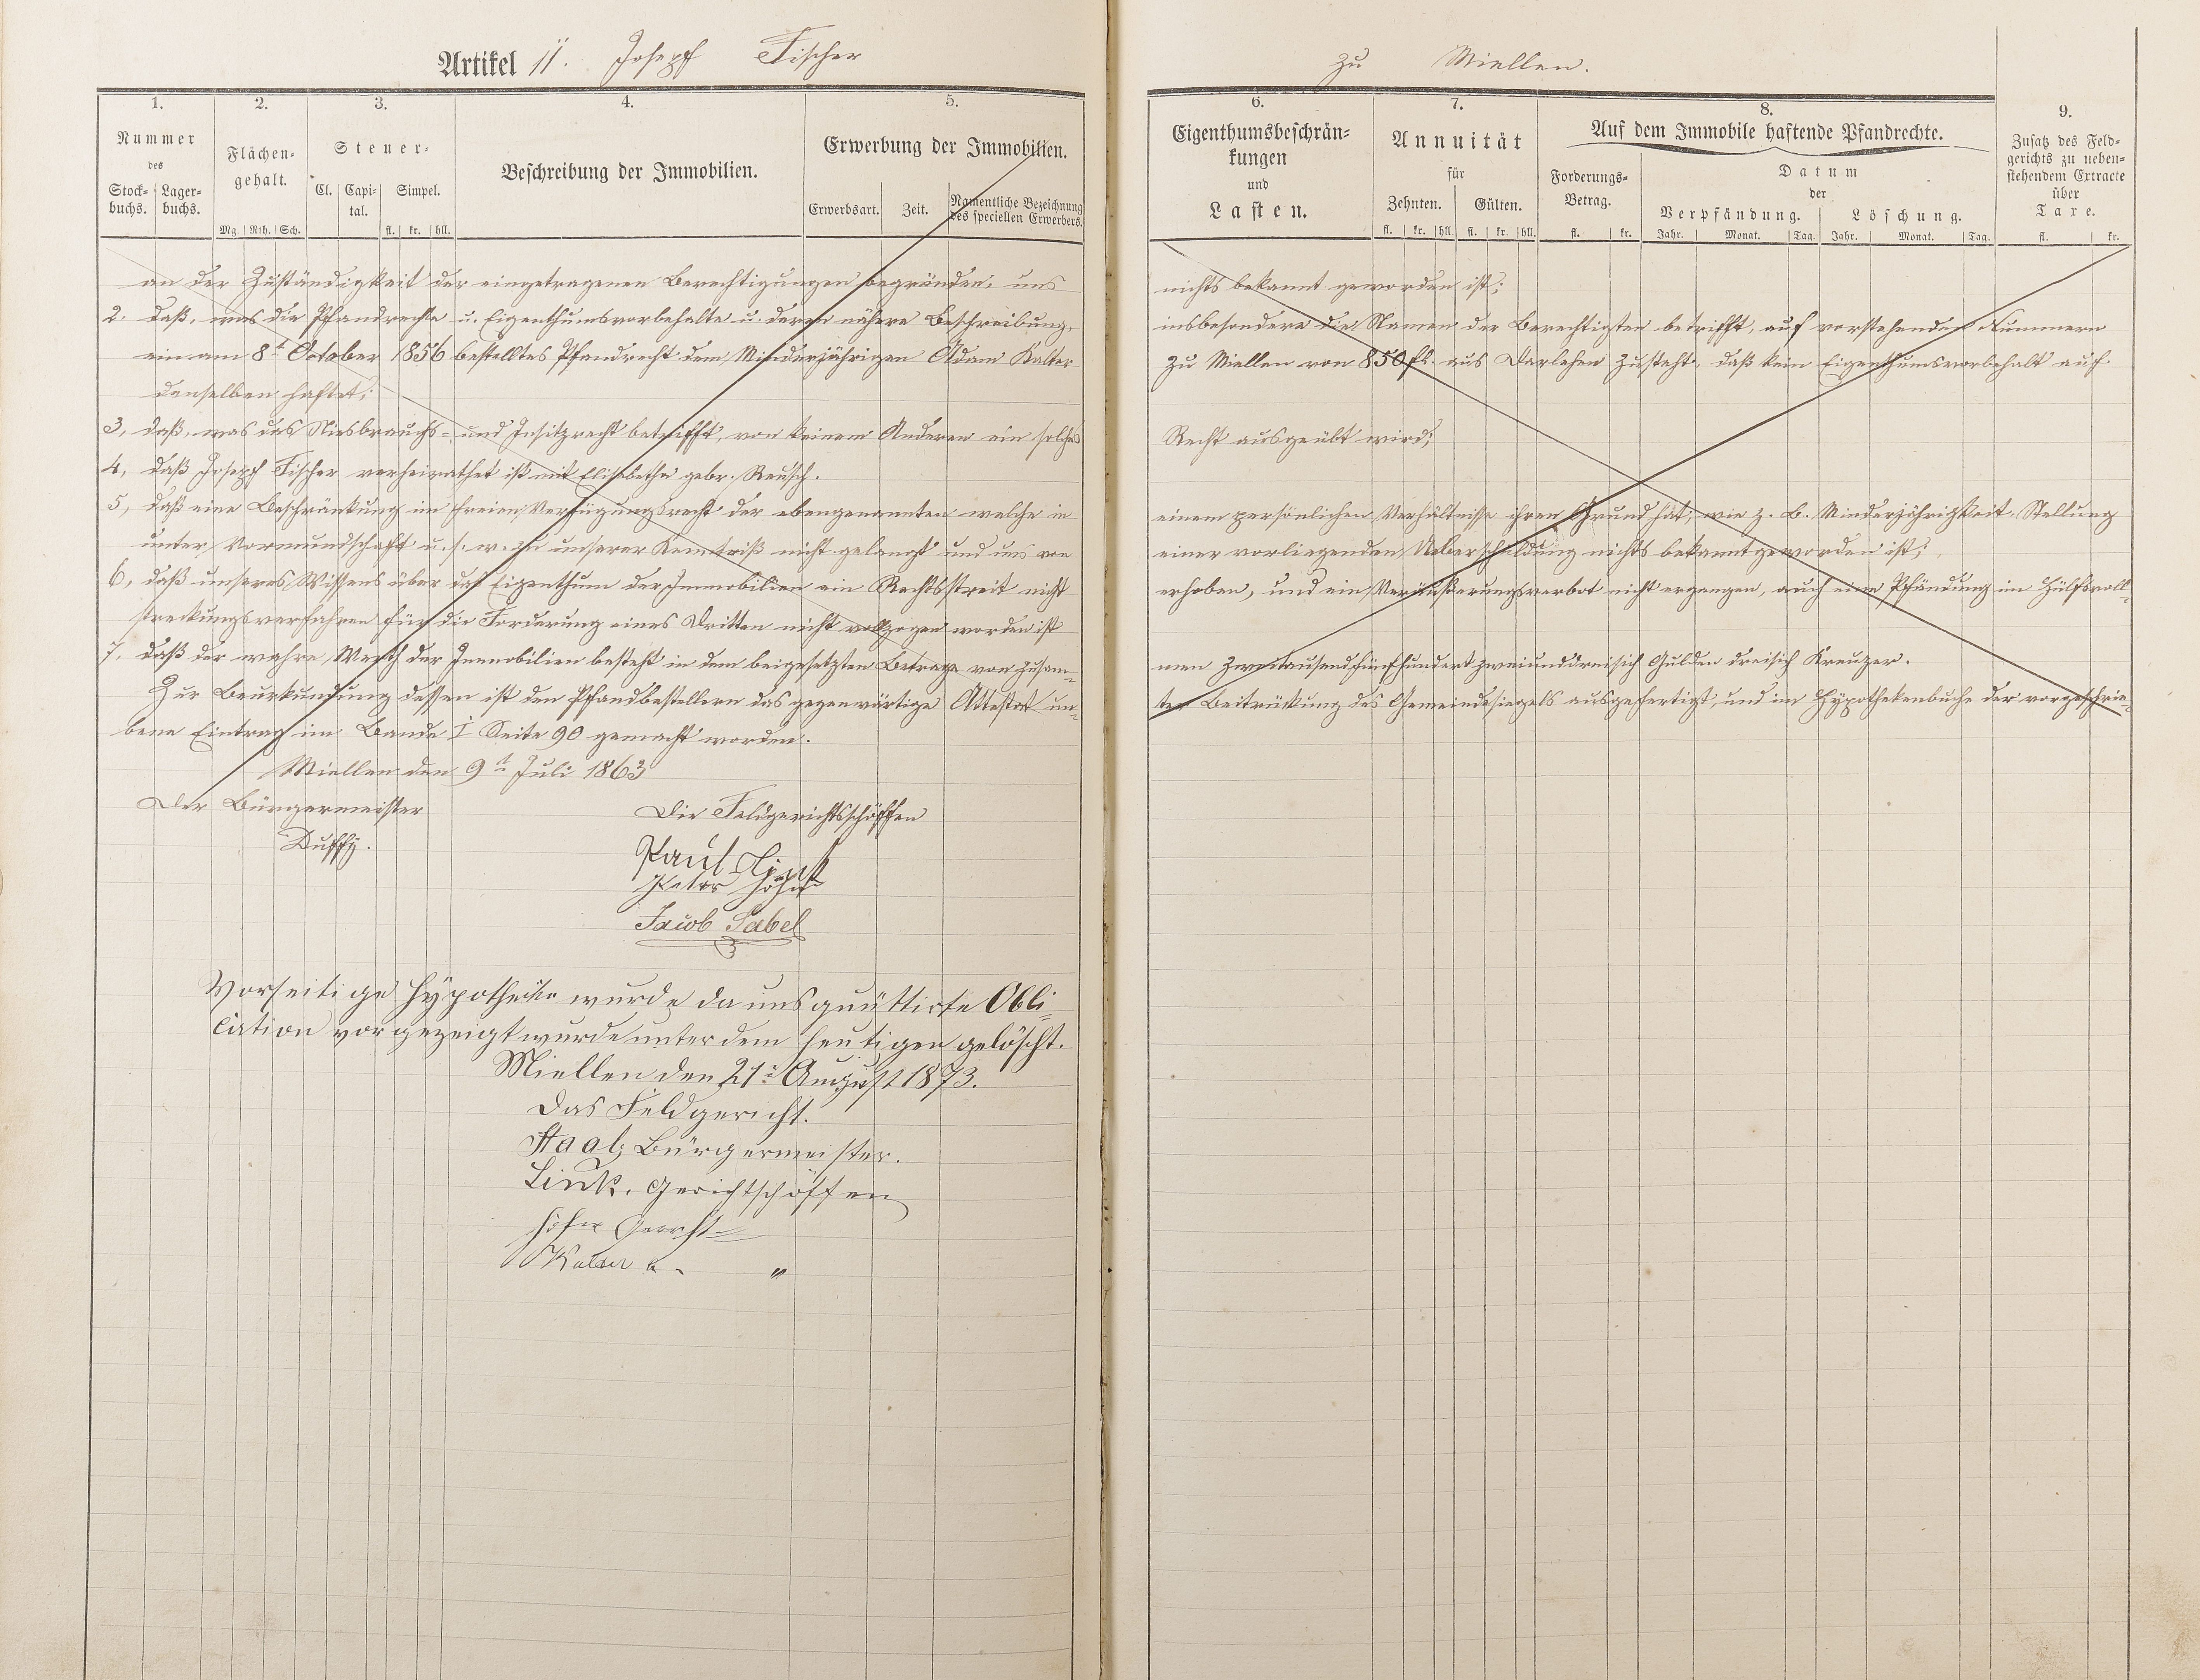 Artikel 11. Joseph Fischer
zu Miellen.
1. 2. 3. 4. 5.
Nummer des
Stock-buchs. Lager-buchs.
Flächen-gehalt.
Mg. Rth. Sch.
Steuer-
Cl. Capi-tal. Simpel.
fl. kr. hll.
Beschreibung der Immobilien.
Erwerbung der Immobilien.
Erwerbsart. Zeit. Namentliche Bezeichnung des speciellen Erwerbers.
6. 7. 8. 9.
Eigenthumsbeschrän-
kungen
und
Lasten.
Annuität
für
Zehnten. Gülten.
fl. kr. hll. fl. kr. hll.
Auf dem Immobile haftende Pfandrechte.
Forderungs-
Betrag.
fl. kr.
Datum
der
Verpfändung. Löschung.
Jahr. Monat. Tag. Jahr. Monat. Tag.
Zusatz des Feld-
gerichts zu neben-
stehendem Extracte
über
Taxe.
fl. kr.
an der Zuständigkeit der eingetragenen Berechtigungen begründen, uns nichts bekannt geworden ist;
2. daß, was die Pfandrechte u. Eigenthumsvorbehalte u. deren nähere Beschreibung, insbesondere die Namen der Berechtigten betrifft, auf vorstehenden Nummern
ein am 8t October 1856 bestelltes Pfandrecht dem Minderjährigen Adam Kalter zu Miellen von 850 fl. aus Darlehen zusteht, daß kein Eigenthumsvorbehalt auf
denselben haftet;
3, daß, was das Niesbrauchs- und Insitzrecht betrifft, von keinem Anderen ein solches Recht ausgeübt wird;
4, daß Joseph Fischer verheirathet ist mit Elisabetha gebr. Reusch.
5, daß eine Beschränkung im freien Verfügungsrecht der ebengenannten welche in einem persönlichen Verhältnisse ihren Grund hat, wie z. B. Minderjährigkeit, Stellung
unter Vormundschaft u. s. w. zu unserer Kenntniß nicht gelangt und uns von einer vorliegenden Ueberschuldung nichts bekannt geworden ist;
6, daß unseres Wissens über das Eigenthum der Immobilien ein Rechtsstreit nicht erhoben, und ein Veräußerungsverbot nicht ergangen, auch eine Pfändung im Hülfsvoll-
streckungsverfahren für die Forderung eines Dritten nicht vollzogen worden ist
7. daß der wahre Werth der Immobilien besteht in dem beigesetzten Betrage von zusam-
men Zweitausendfünfhundert zweiunddreisich Gulden dreisich Kreuzer.
Zur Beurkundung dessen ist den Pfandbestellern das gegenwärtige Attestat un-
ter Beitrückung des Gemeindesiegels ausgefertigt, und im Hypothekenbuche der vorgeschrie-
bene Eintrag im Bande I Seite 90 gemacht worden.
Miellen den 9t Juli 1863
Der Bürgermeister
Duffy.
Die Feldgerichtsschöffen
Paul Linck
Peter Höhn
Jacob Sabel
Vorseitige Hypotheke wurde da uns quüttirte Obli-
cation vorgezeigt wurde unter dem heutigen gelöscht.
Miellen den 21t August 1873.
Das Feldgericht.
Staab Bürgermeister.
Link. Gerichtschöffen